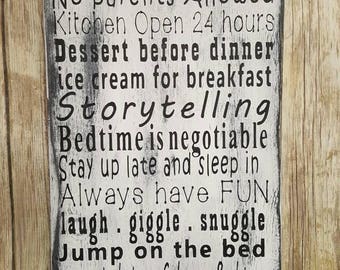 No Parents Allowed
Kitchen Open 24 hours
Dessert before dinner
ice cream for breakfast
Storytelling
Bedtime is negotiable
Stay up late and sleep in
Always have FUN
laugh . giggle . snuggle
Jump on the bed